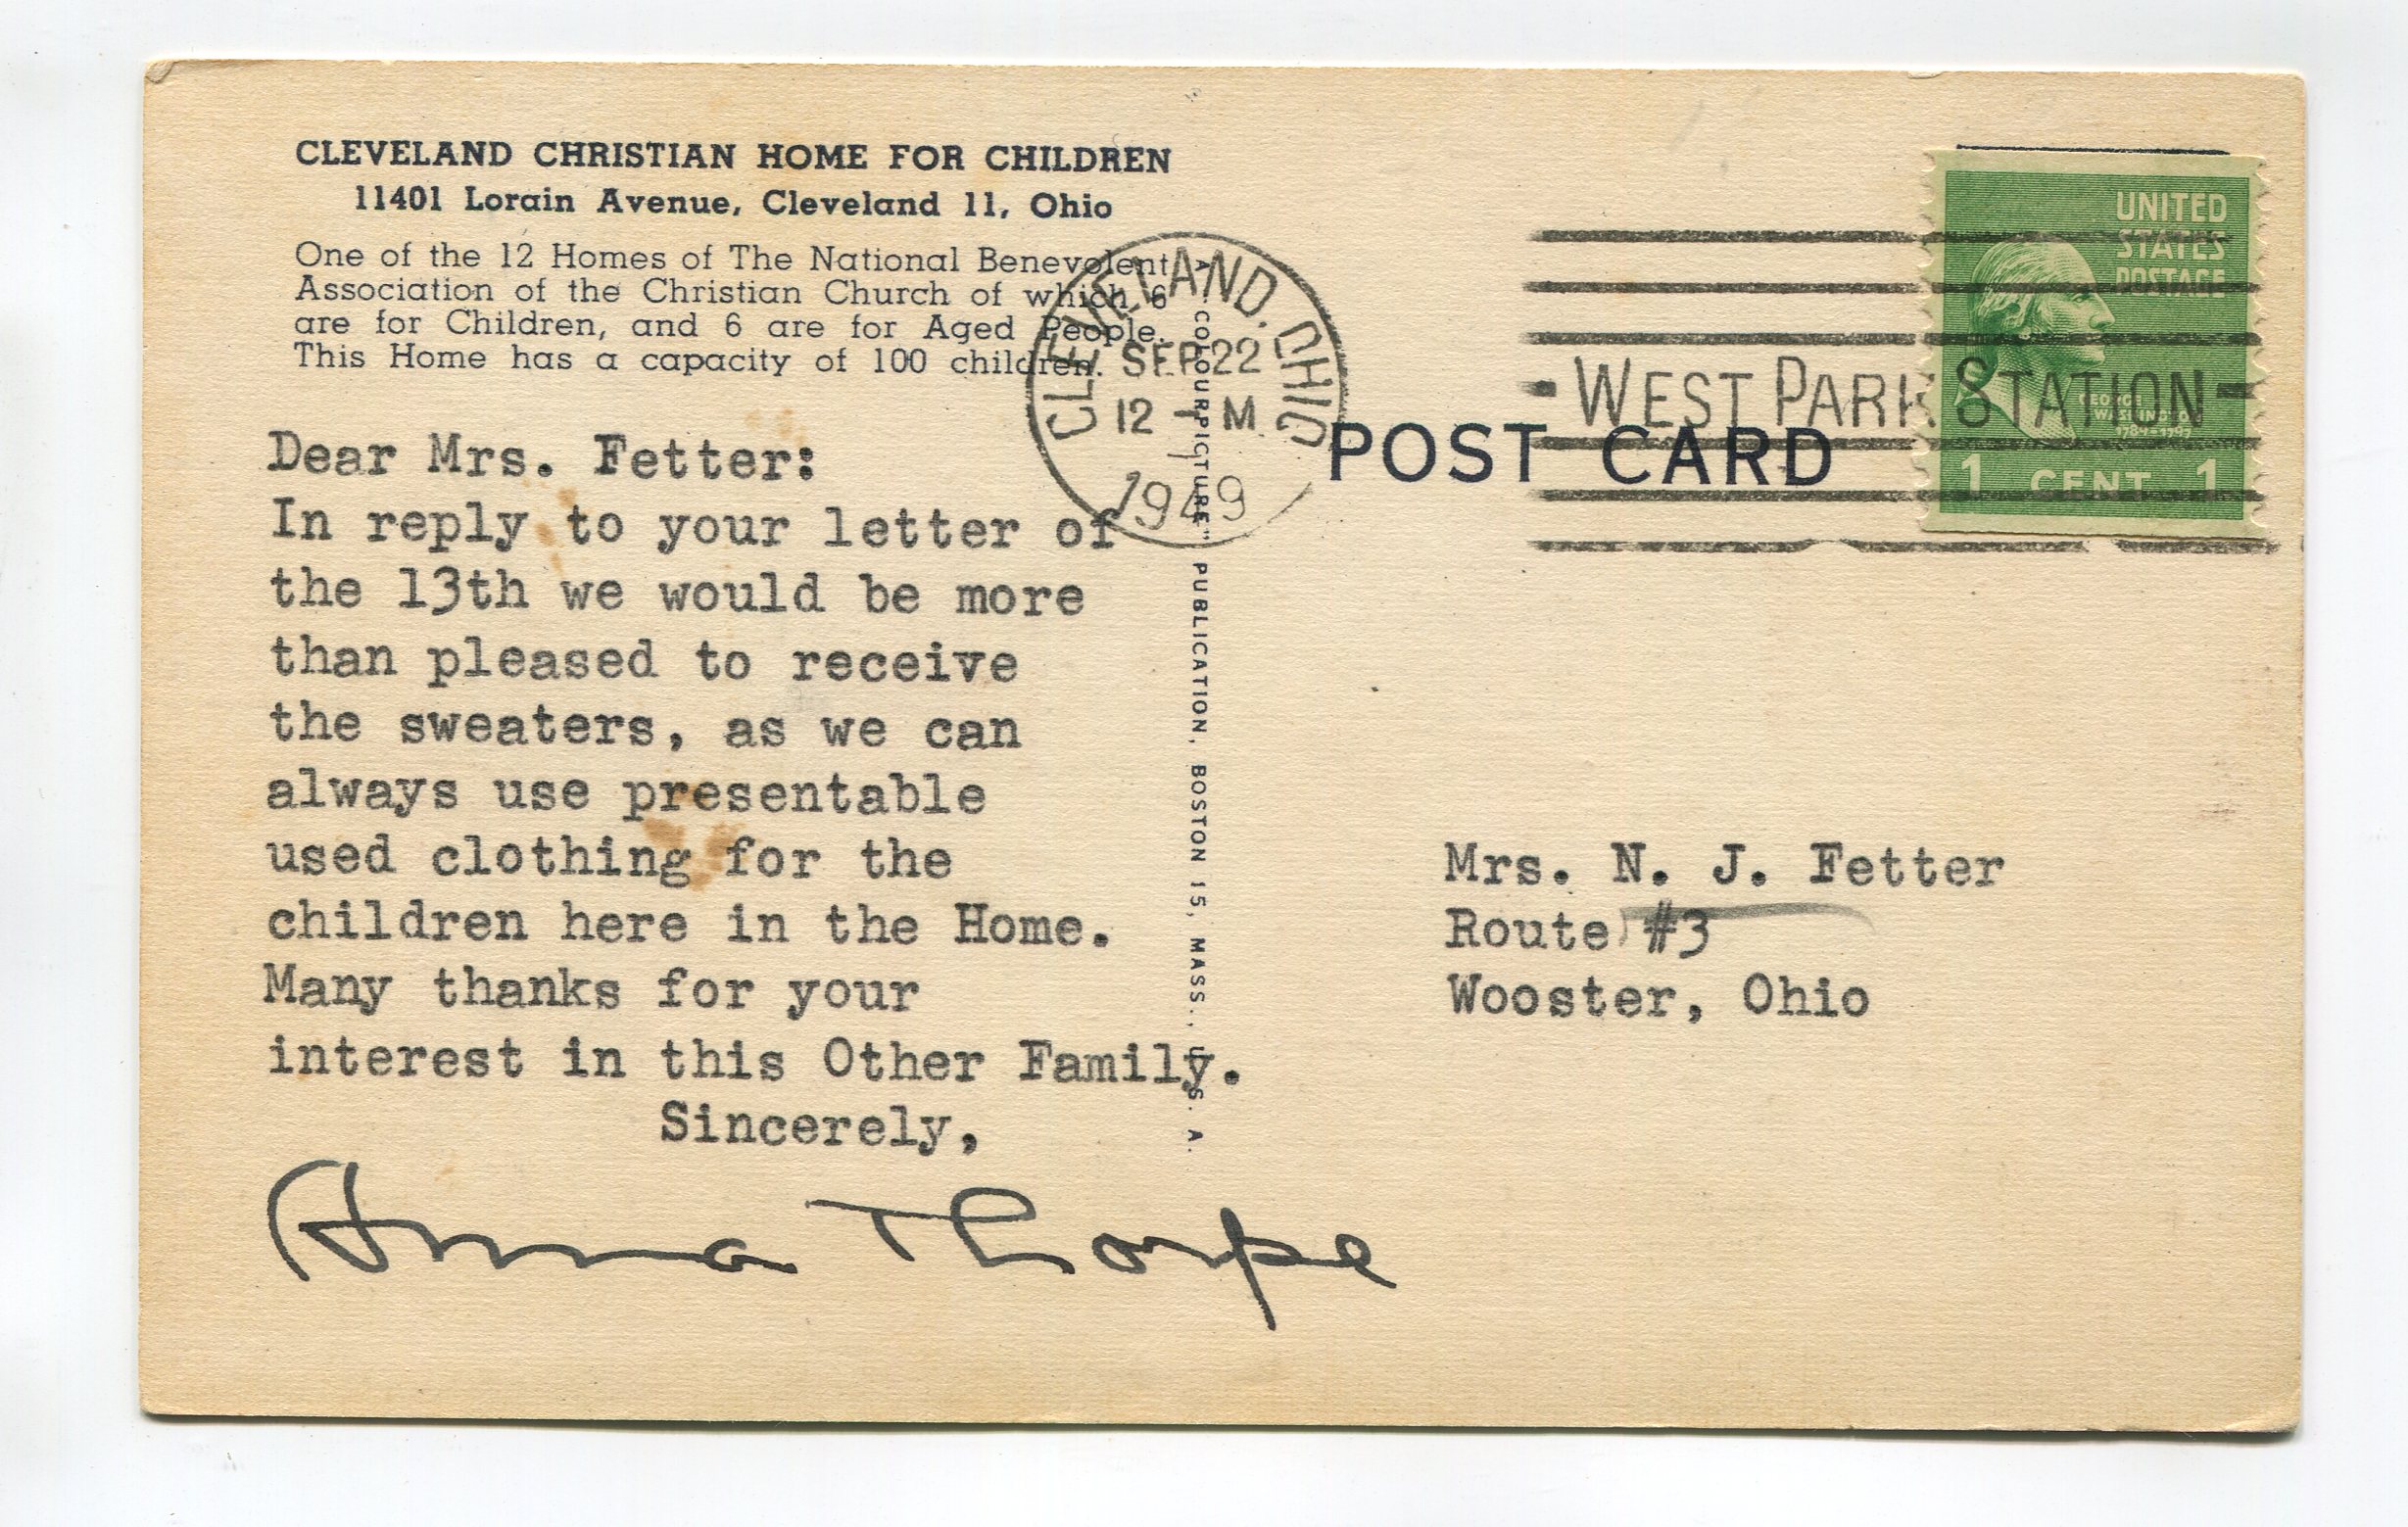 CLEVELAND CHRISTIAN HOME FOR CHILDREN
11401 Lorain Avenue, Cleveland 11, Ohio
One of the 12 Homes of The National Benevolent
Association of the Christian Church of which 6
are for Children, and 6 are for Aged People.
This Home has a capacity of 100 children.
Dear Mrs. Fetter:
In reply to your letter of
the 13th we would be more
than pleased to receive
the sweaters, as we can
always use presentable
used clothing for the
children here in the Home.
Many thanks for your
interest in this Other Family.
Sincerely,
Anna Thorpe
A "COLOURPICTURE" PUBLICATION, BOSTON 15, MASS., U.S.A.
CLEVELAND, OHIO
SEP 22
12 M
1949
WEST PARK STATION
POST CARD
UNITED
STATES
POSTAGE
GEORGE
WASHINGTON
1789-1797
1 CENT 1
Mrs. N. J. Fetter
Route #3
Wooster, Ohio